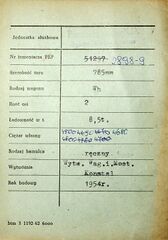 Jednostka służbowa
Nr inwentarza PKP 51247 2898-9
Szerokość toru 785mm
Rodzaj wagonu Wh
Ilość osi 2
Ładowność w t 8,5t.
Ciężar własny
Rodzaj hamulca ręczny
Wytwórnia Wytw. Wag.i.Most.
Konstal
Rok budowy 1954r.